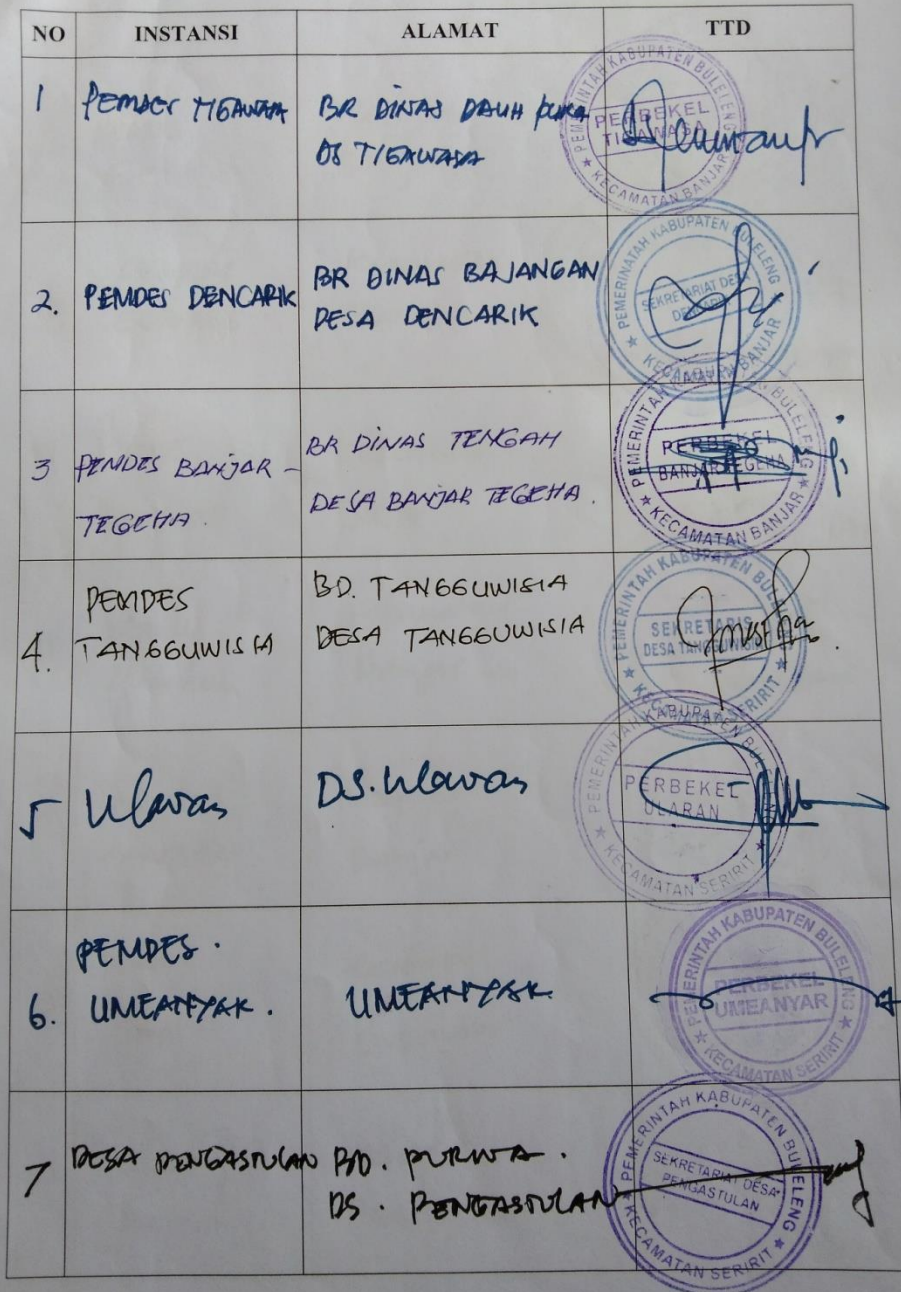 NO INSTANSI ALAMAT TTD
1 PEMDES TIGAWASA BR DINAS DAUH PURA
DS TIGAWASA
PEMERINTAH KABUPATEN BULELENG
PERBEKEL
TIGAWASA
KECAMATAN BANJAR
2. PEMDES DENCARIK BR DINAS BAJANGAN
DESA DENCARIK
PEMERINATAH KABUPATEN BULELENG
SEKRETARIAT DESA
DENCARIK
KECAMATAN BANJAR
3 PEMDES BANJAR - BR DINAS TENGAH
TEGEHA. DESA BANJAR TEGEHA.
PEMERINTAH BULELENG
PERBEKEL
BANJAR TEGEHA
KECAMATAN BANJAR
4. PEMDES BD. TANGGUWISIA
TANGGUWISIA DESA TANGGUWISIA
PEMERINTAH KABUPATEN BULELENG
SEKRETARIS
DESA TANGGUWISIA
KECAMATAN SERIRIT
5 Ularan DS. Ularan
PEMERINTAH KABUPATEN BULELENG
PERBEKEL
ULARAN
KECAMATAN SERIRIT
6. PEMDES.
UMEANYAR. UMEANYAR
PEMERINTAH KABUPATEN BULELENG
PERBEKEL
UMEANYAR
KECAMATAN SERIRIT
7 DESA PENGASTULAN BD. PURWA.
DS. PENGASTULAN
PEMERINTAH KABUPATEN BULELENG
SEKRETARIAT DESA
PENGASTULAN
KECAMATAN SERIRIT